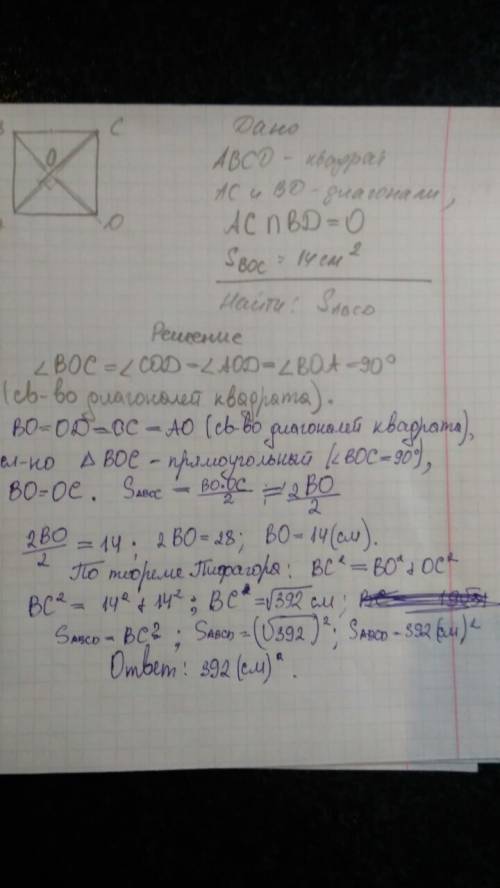 B C
O
D
Дано
ABCD - квадрат
AC и BD - диагонали,
AC ∩ BD = O
S BOC = 14 см²
Найти: S ABCD
Решение
∠BOC = ∠COD = ∠AOD = ∠BOA = 90°
(св-во диагоналей квадрата).
BO = OD = OC = AO (св-во диагоналей квадрата),
сл-но △ BOC - прямоугольный (∠BOC = 90°),
BO = OC. S△BOC = BO·OC/2 ; = 2BO/2
2BO/2 = 14 ; 2BO = 28; BO = 14 (см).
По теореме Пифагора: BC² = BO² + OC²
BC² = 14² + 14² ; BC² = √392 см ;
S ABCD = BC² ; S ABCD = (√392)² ; S ABCD = 392 (см)²
Ответ: 392 (см)².